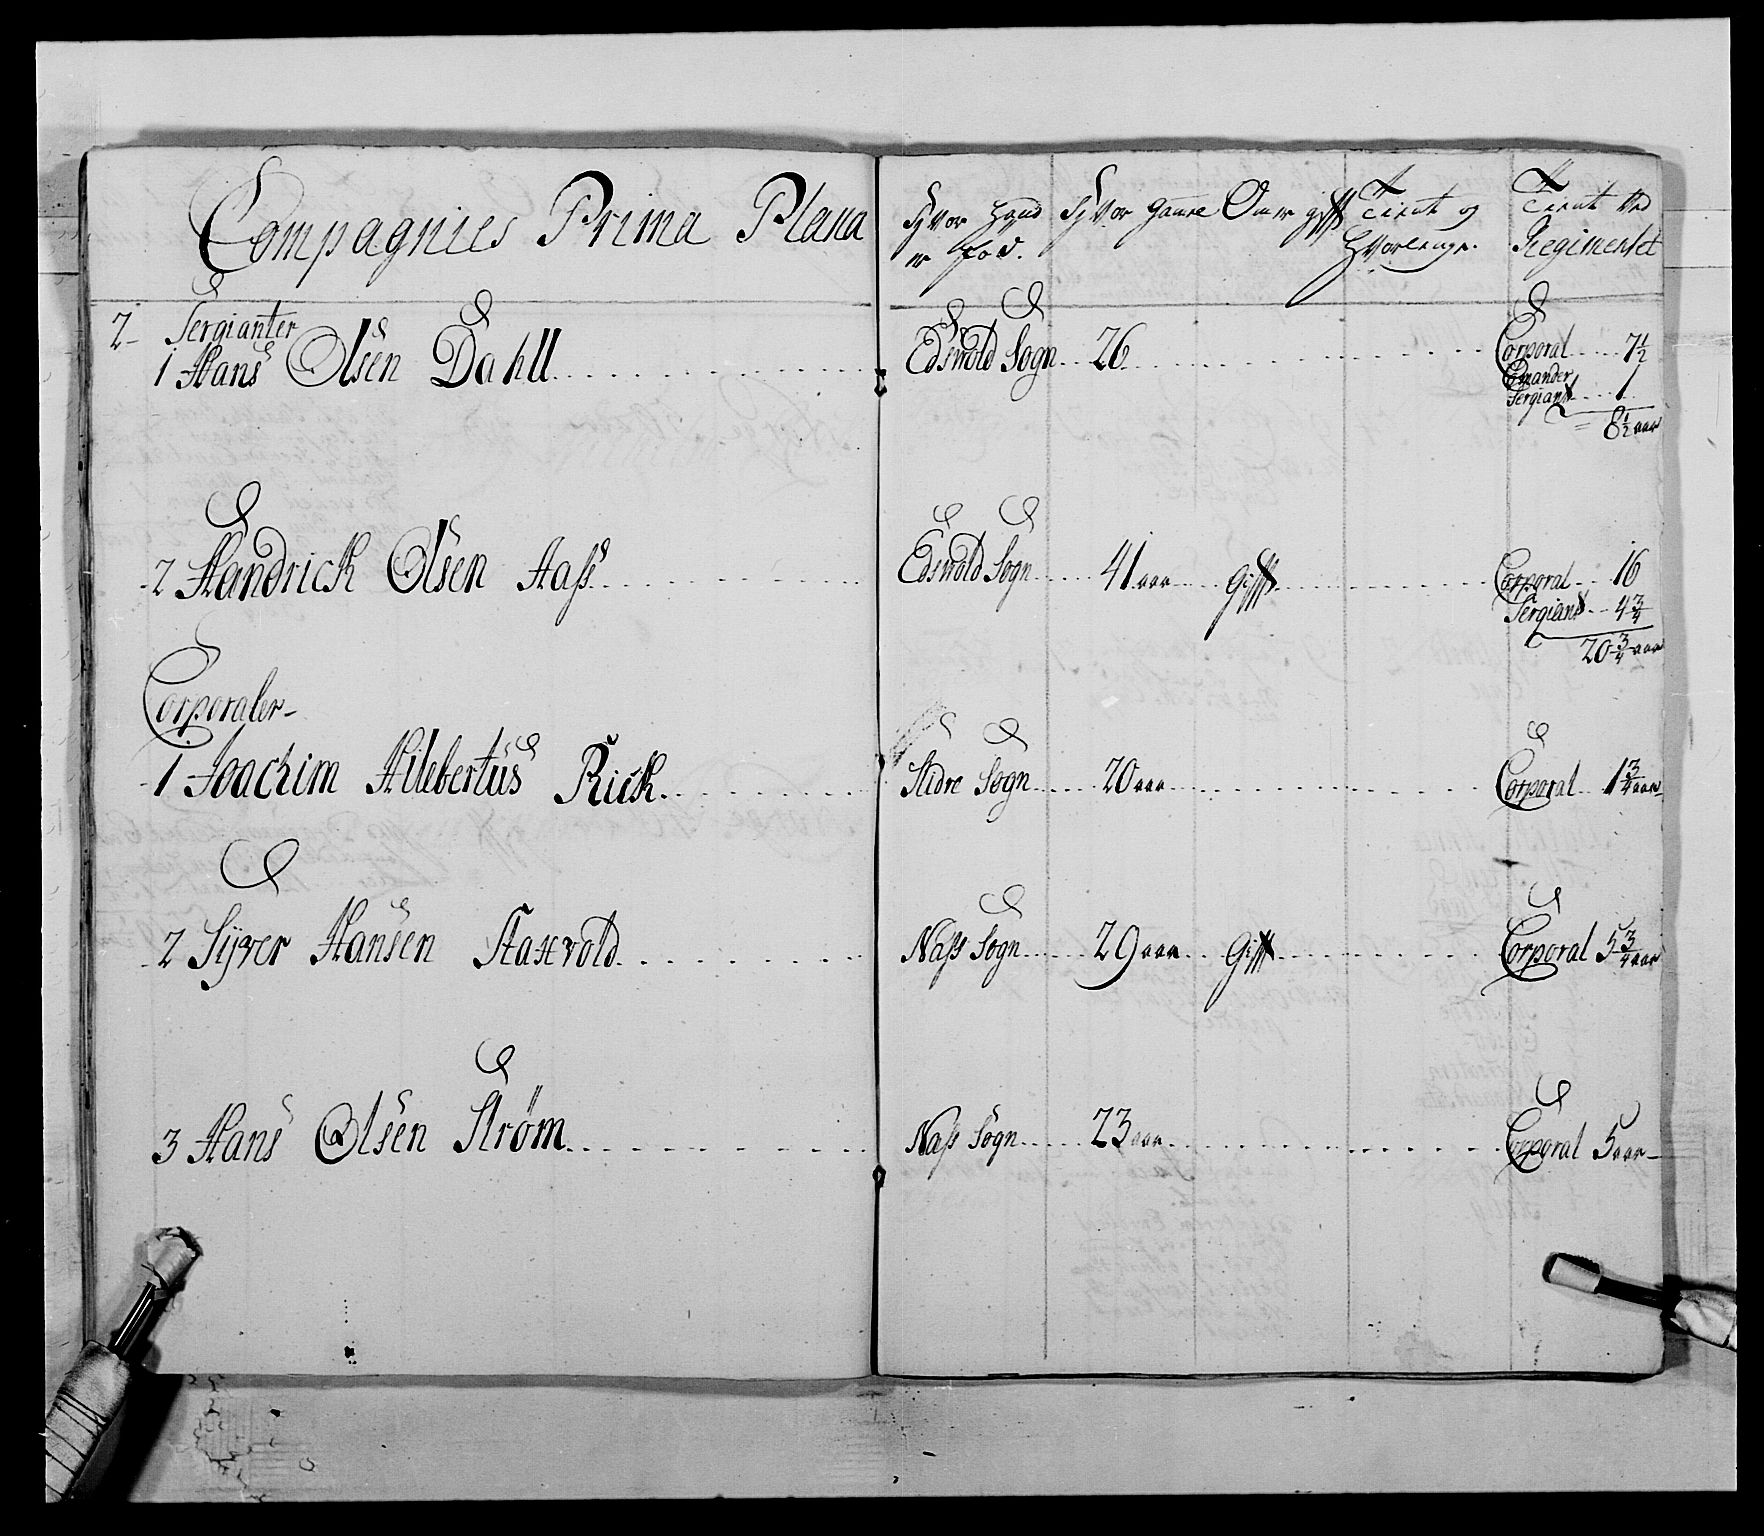 Compagnies Prima Plana
Hvor hand er fød.
Hvor gamel
Om er gift
Tient og Hvorlenge.
Tient ved Regimentet
2- Sergianter
1 Hans Olsen Dahll
Edswold Sogn 26
Corporal 7 1/2
Comander Sergiant 1
8 1/2 aar
2 Handrick Olsen Aass
Edswold Sogn 41 aar Gift
Corporal 16
Sergiant 4 3/4
20 3/4 aar
Corporaler-
1 Joachim Hilebertus Rick
Slidre Sogn 20 aar
Corporal 1 3/4 aar
2 Syver Hansen Haxwold
Nass Sogn 29 aar Gift
Corporal 5 3/4 aar
3 Hans Olsen Strøm
Nass Sogn 23 aar
Corporal 5 aar